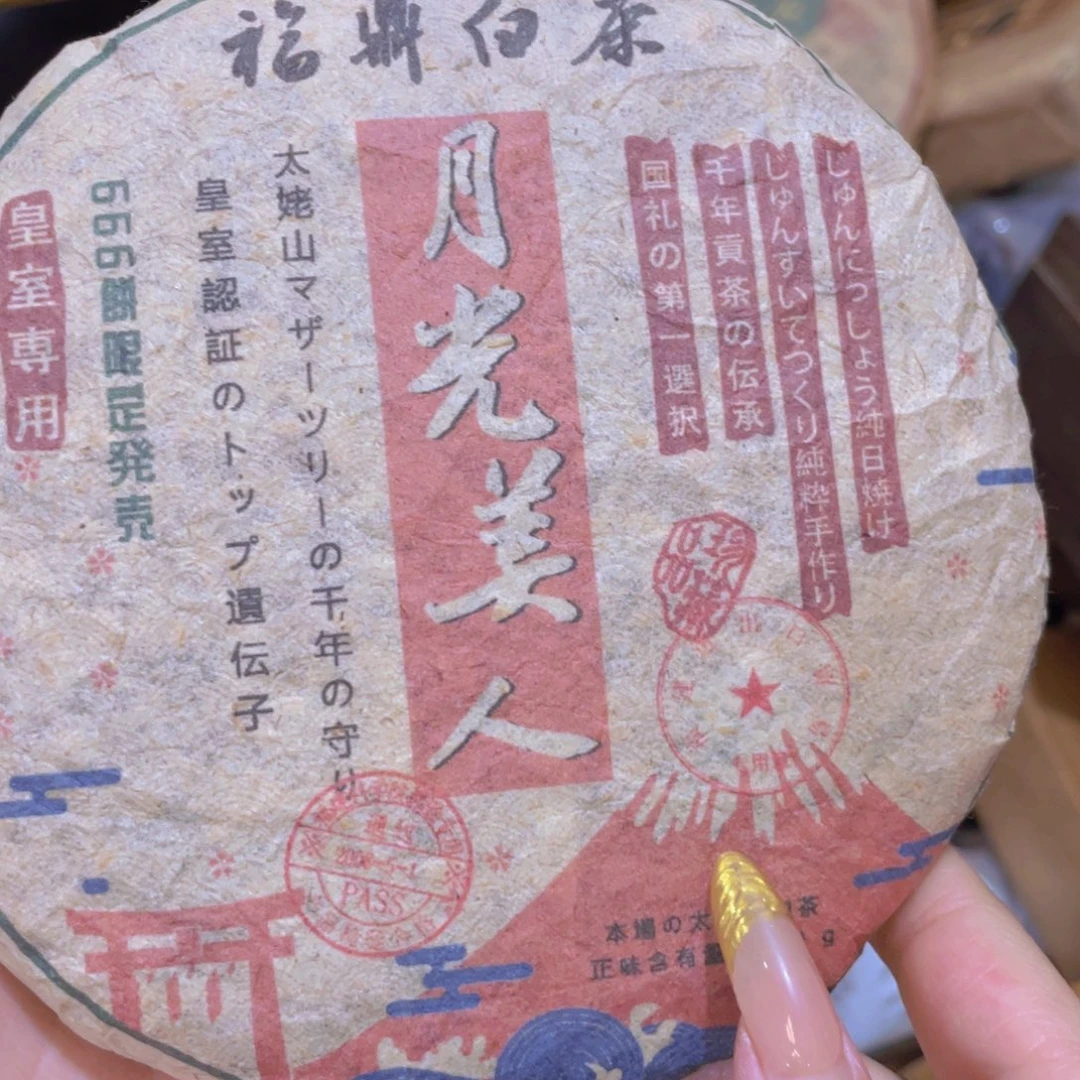 福鼎白茶
じゅんにっしょう純日焼け
じゅんすいてつくり純粋手作り
千年貢茶の伝承
国礼の第一選択
月光美人
太姥山マザーツリーの千年の守り
皇室認証のトップ遺伝子
666餅限定発売
皇室専用
PASS
本場の太
茶
正味含有量
g